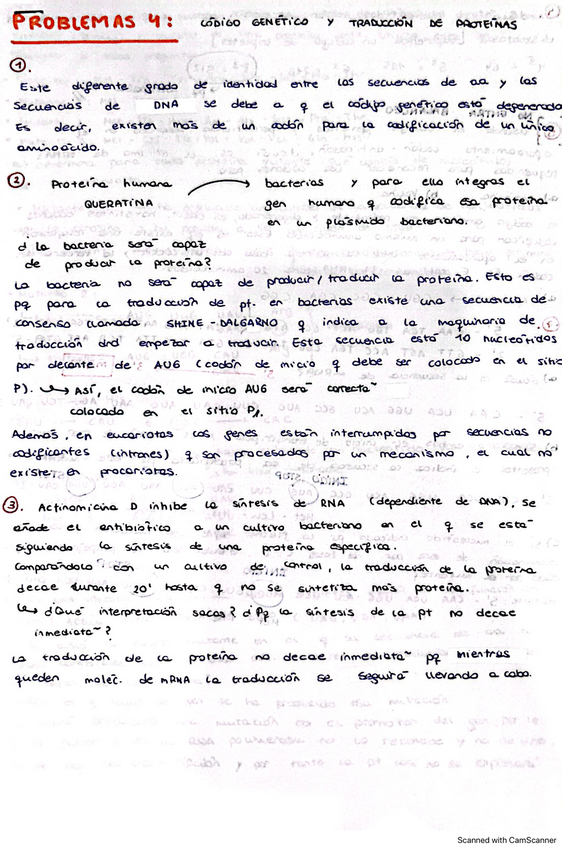 PROBLEMAS 4: CÓDIGO GENÉTICO Y TRADUCCIÓN DE PROTEÍNAS
①.
Este diferente grado de identidad entre las secuencias de aa y las
secuencias de DNA se debe a q el código genético está degenerado
Es decir, existen más de un codón para la codificación de un único
aminoácido.
②. Proteína humana → bacterias y para ello integras el
QUERATINA gen humano q codifica esa proteína
en un plásmido bacteriano.
d La bacteria será capaz
de producir la proteína?
La bacteria no será capaz de producir/traducir la proteína. Esto es
pq para la traducción de pt. en bacterias existe una secuencia de
consenso llamada SHINE-DALGARNO q indica a la maquinaria de
traducción dnd empezar a traducir. Esta secuencia está 10 nucleótidos
por delante de AUG (codón de inicio q debe ser colocado en el sitio
P). ↳ Así, el codón de inicio AUG será correcta‾
colocado en el sitio P.
Además, en eucariotas los genes están interrumpidos por secuencias no
codificantes (intrones) q son procesados por un mecanismo, el cual no
existe en procariotas.
③. Actinomicina D inhibe la síntesis de RNA (dependiente de DNA), se
añade el antibiótico a un cultivo bacteriano en el q se está
siguiendo la síntesis de una proteína específica.
Comparándolo con un cultivo de control, la traducción de la proteína
decae durante 20' hasta q no se sintetiza más proteína.
↳ d Qué interpretación sacas? d Pq la síntesis de la pt no decae
inmediata‾?
La traducción de la proteína no decae inmediata‾ pq mientras
queden moléc. de mRNA la traducción se seguirá llevando a cabo.
Scanned with CamScanner